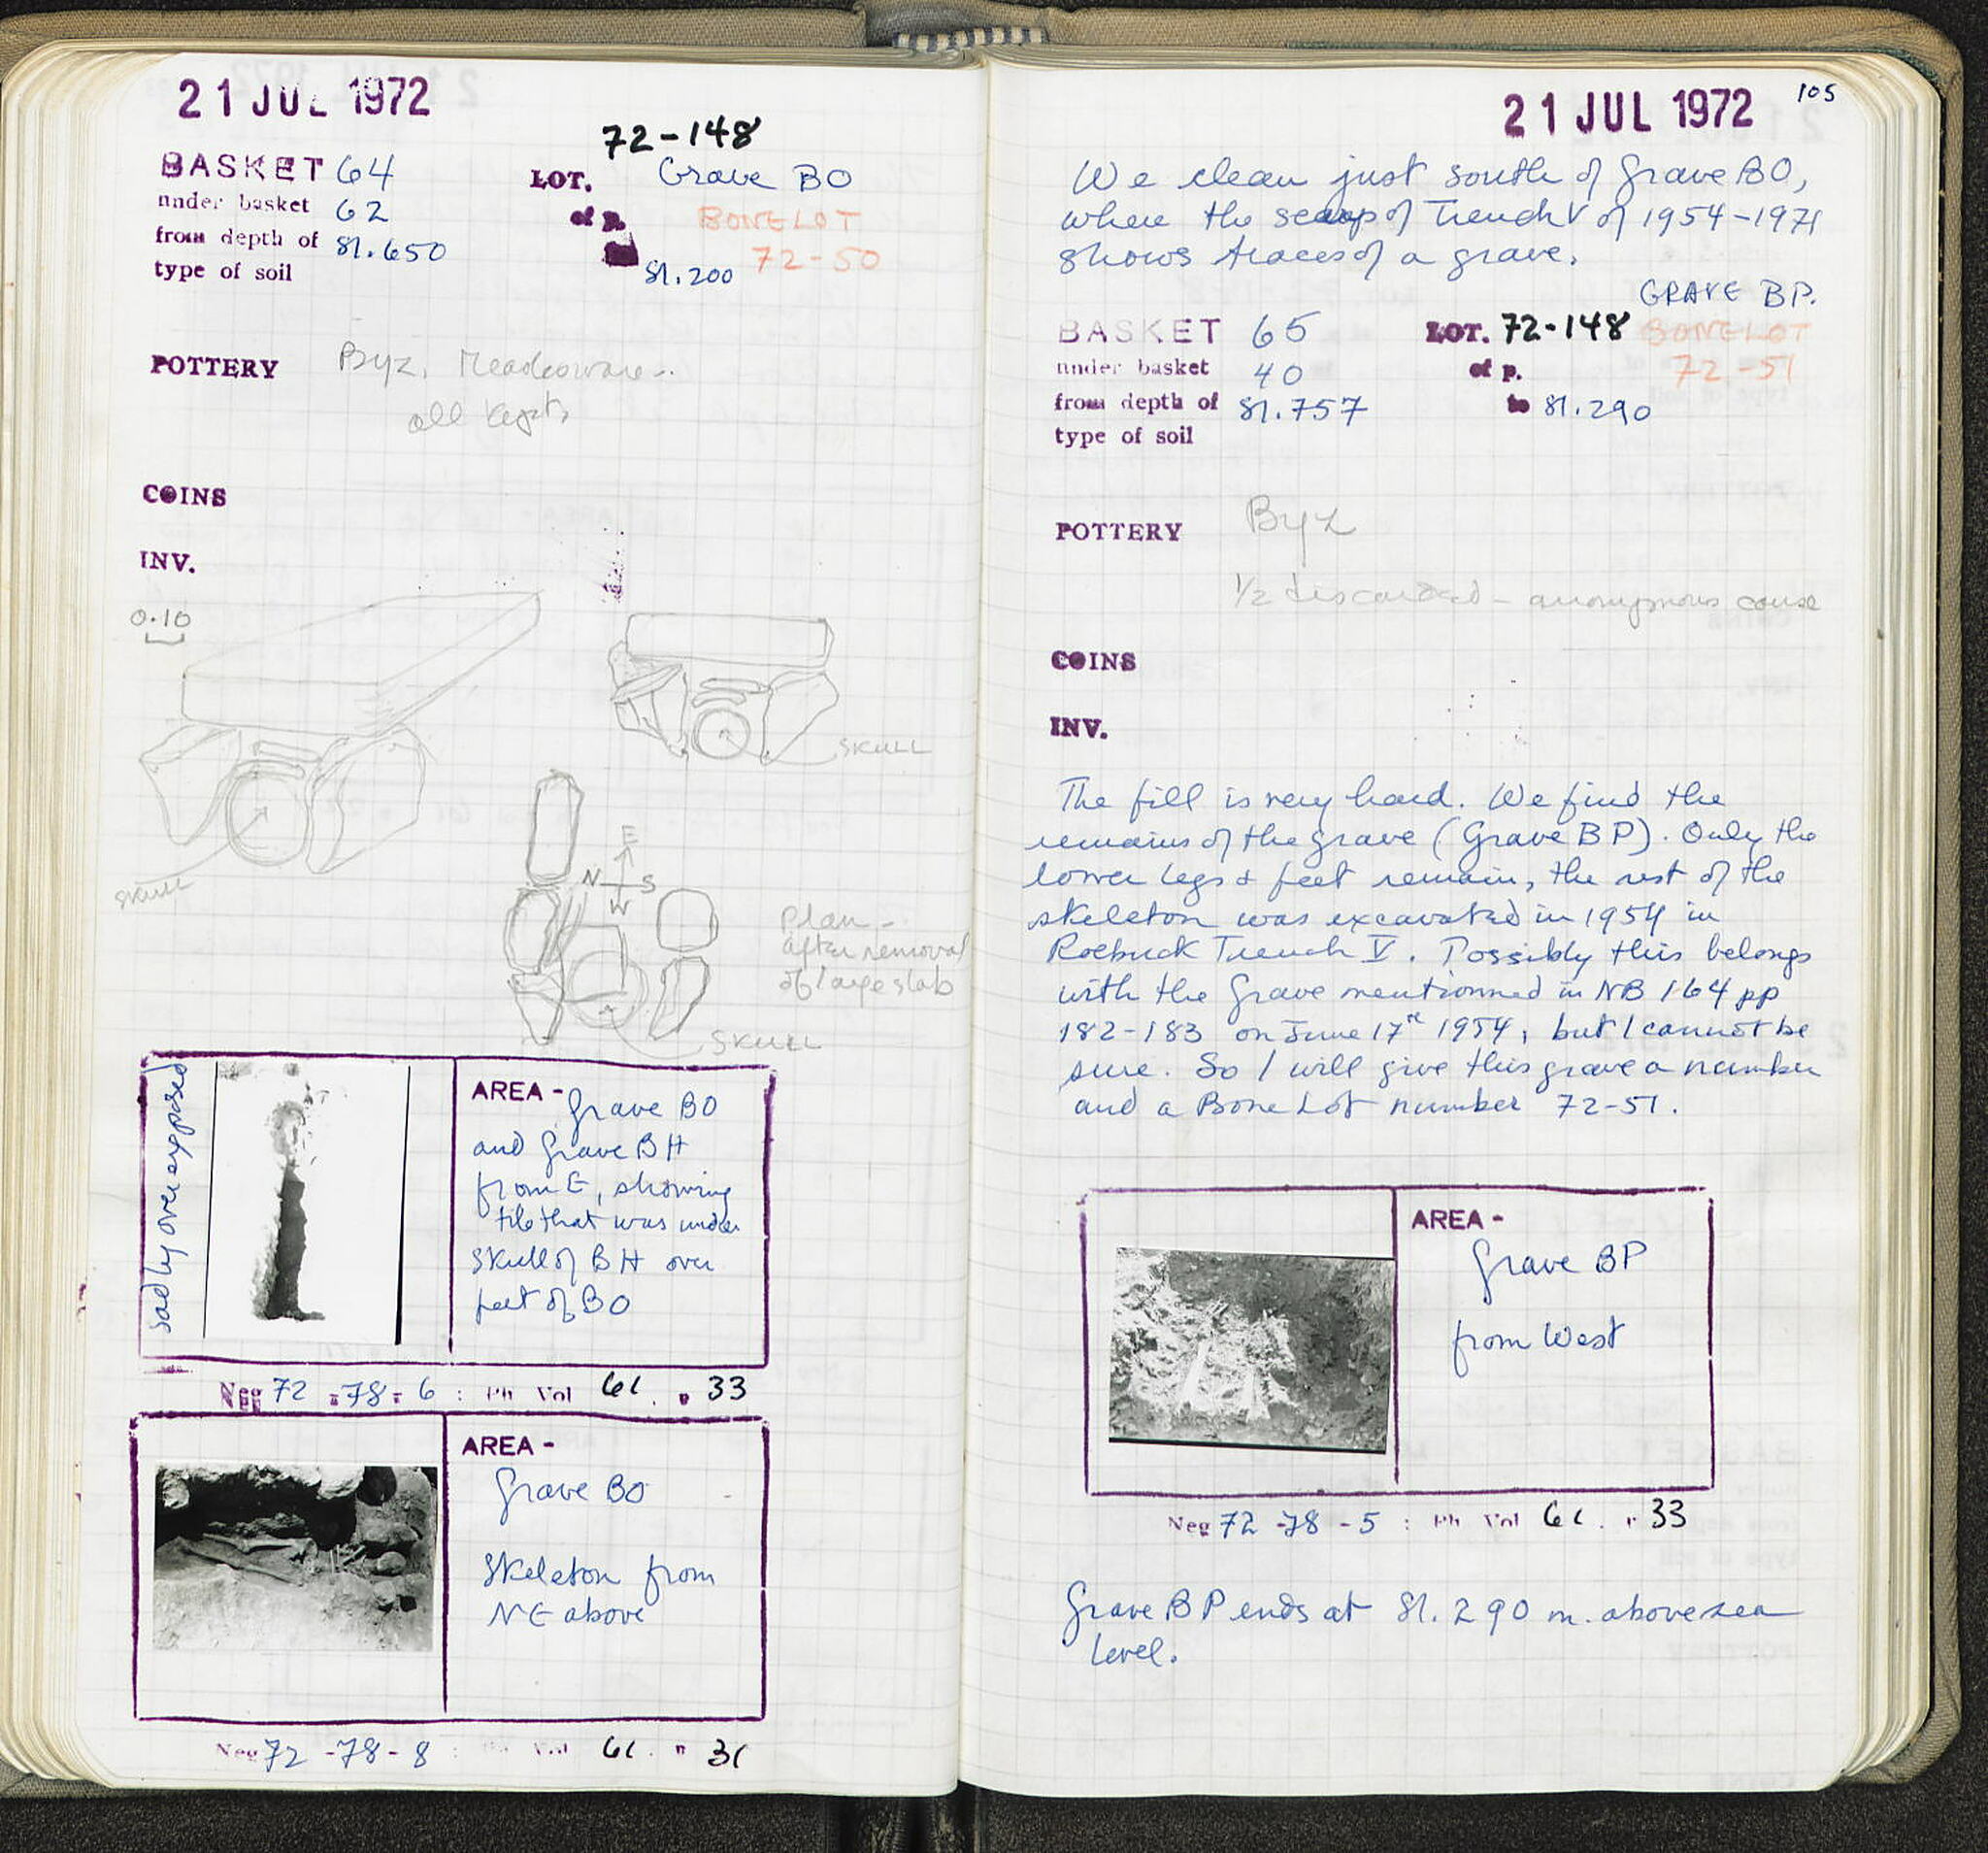 21 JUL 1972
72-148
BASKET 64
LOT. Grave BO
under basket 62
of p. BONE LOT
from depth of 81.650
72-50
81.200
type of soil
POTTERY Byz.
all kept
COINS
INV.
0.10
SKULL
SKULL
E
N S
W
Plan -
after removal
of large slab
SKULL
sadly overexposed
AREA - Grave BO
and Grave BH
from E, showing
tile that was under
skull of BH over
feet of BO
Neg 72 - 78 - 6 : Ph Vol 61. p 33
AREA -
Grave BO
Skeleton from
NE above
Neg 72 - 78 - 8 : Vol 61. p 31
105
21 JUL 1972
We clean just south of Grave BO,
where the scarp of Trench V of 1954-1971
shows traces of a grave.
GRAVE BP.
BASKET 65
LOT. 72-148 BONE LOT
under basket 40
of p. 72-51
from depth of 81.757
to 81.290
type of soil
POTTERY Byz
1/2 discarded - anonymous coarse
COINS
INV.
The fill is very hard. We find the
remains of the grave (Grave BP). Only the
lower legs & feet remain, the rest of the
skeleton was excavated in 1954 in
Roebuck Trench V. Possibly this belongs
with the Grave mentionned in NB 164 pp
182-183 on June 17th 1954, but I cannot be
sure. So I will give this grave a number
and a Bone Lot number 72-51.
AREA -
Grave BP
from West
Neg 72 - 78 - 5 : Ph Vol 61. p 33
Grave BP ends at 81.290 m. above sea
level.